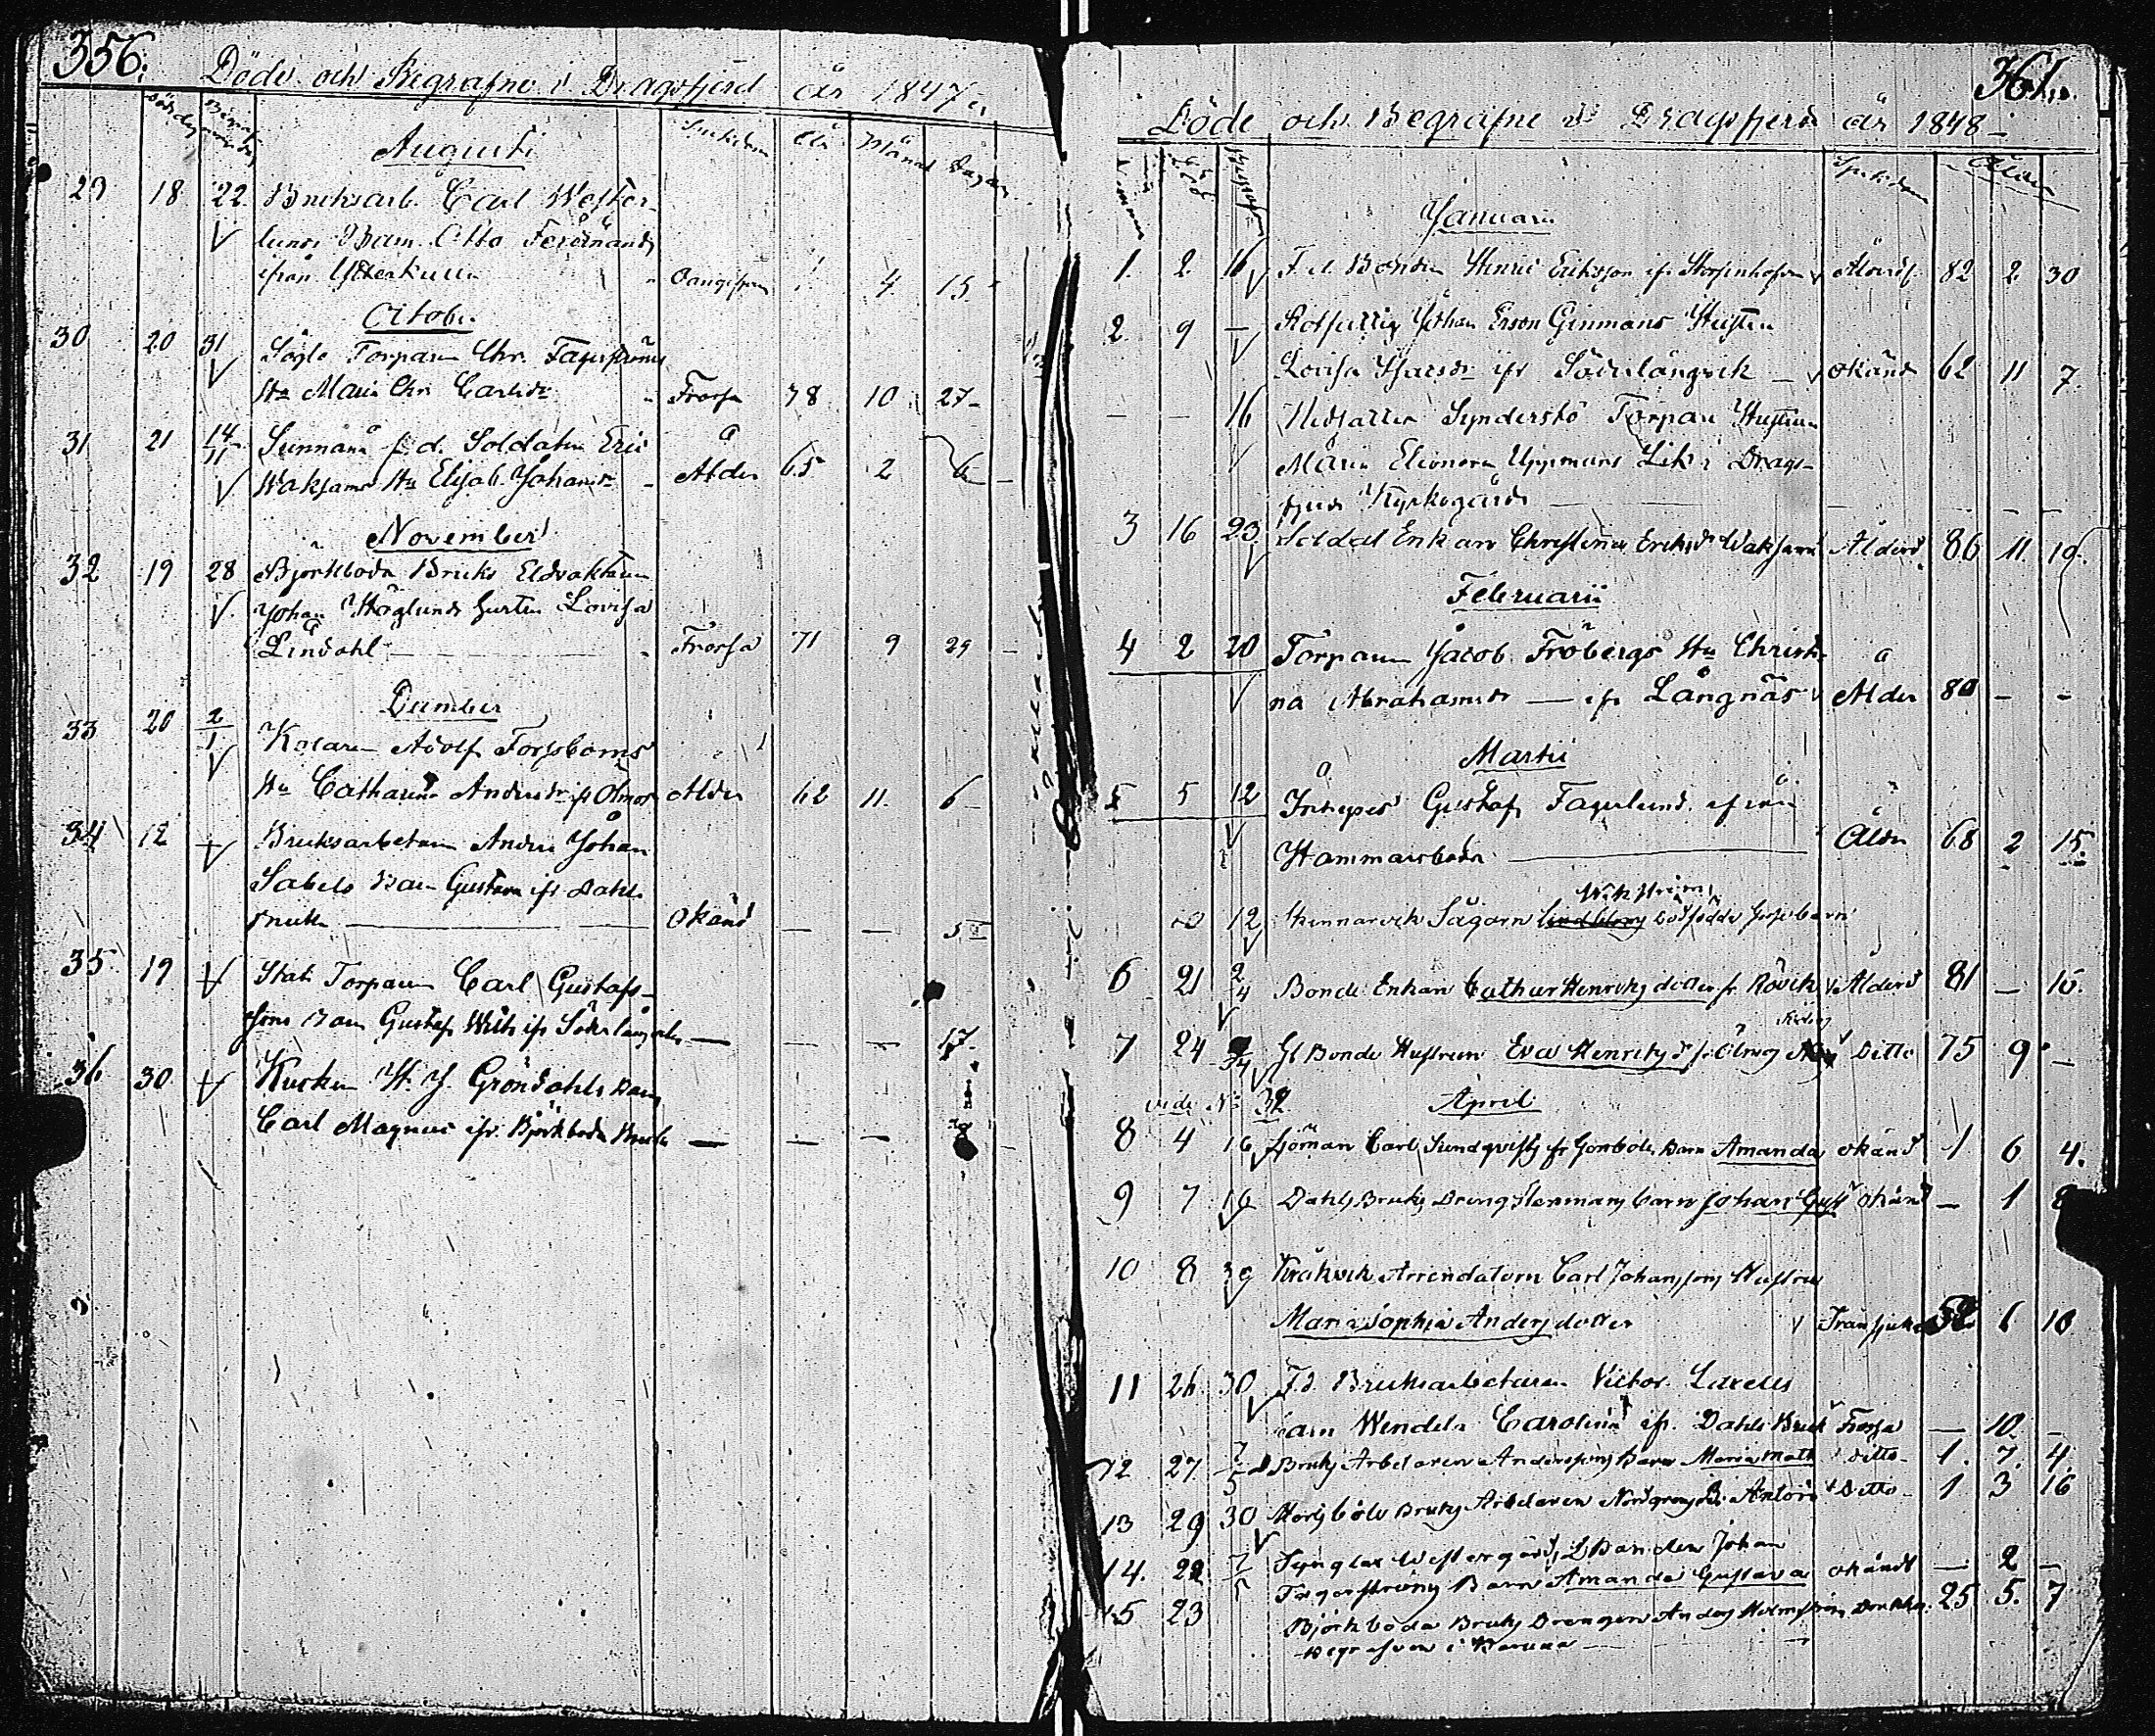 356.
Döde och Begrafne i Dragsfjerd år 1847.
Sjukdom År Månad Dagar
Augusti
29 18 22 Bruksarb. Carl Wester-
lunds Barn Otto Ferdinand
ifrån Ytterkulla 4 15
October
30 20 31 Torparen Chr. Fagerströms
Hu Maria Chr. Carlsdr Frossa 78 10 27
31 21 14/11 Sunnanå f. d. Soldaten Eric
Waksams Hu Elisab. Johansdr Ålder 65 2 6
November
32 19 28 Björkboda Bruks Eldvaktaren
Johan Häglunds Hustru Lovisa
Lindahl Frossa 71 9 29
December
33 20 2/1 Kolaren Adolf Forsboms
Hu Catharina Andersdr fr Ölmos Ålder 62 11 6
34 12 Bruksarbetaren Anders Johan
Sabels Barn Gustava ifr Dahls
bruk Okänd — — 5
35 19 Stats Torparen Carl Gustafs-
sons Barn Gustaf Wilh ifr Söderlångvik — — — 17
36 30 Kusken H. J. Gröndahls Barn
Carl Magnus ifr. Björkboda Bruk — — — 8
361.
Döde och Begrafne i Dragsfjerd år 1848
Sjukdom Ålder
Januarii
1. 2 16 F. d. Bonden Henric Eriksson ifr Ålderd. 82 2 30
2. 9 — Rotfattig Johan Erson Ginmans Hustru
Lovisa Isacsdr ifr Söderlångvik okänd 62 11 7
— — 16 Torpare Hustrun
Maria Eleonora Uppmans Lik i Drags-
fjerds Kyrkogård
3 16 23 Soldat Enkan Christina Eriksdr Waksam Ålderd 86 11 19
Februarii
4 2 20 Torparen Jacob Fröbergs Hu Christi-
na Abrahamsdr — ifr Långnäs Ålder 80 - -
Martii
5 5 12 Inhyses Gustaf Fagerlund ifrån
Hammarsboda Ålder 68 2 15
12 Sågarn Lindberg Wikström dödfödde barn
6 21 2/4 Bonde Enkan Cathar Henriksdotter fr Rövik Ålderd 81 — 15.
7 24 Gl Bonde Hustrun Eva Henriksdr fr Ölmos Ditto 75 9 —
vide No 32. April
8 4 16 Sjöman Carl Sundqvists fr Barn Amanda okänd 1 6 4.
9 7 16 Dahls Bruks Dreng Stenmans barn Johan Gust okänd — 1 8
10 8 Kråkvik Arrendatorn Carl Johanssons Hustru
Maria Sophia Andersdotter 52 6 10
11 26 30 F. d. Bruksarbetaren Victor Laxells
barn Wendela Carolina ifr. Dahls Bruk Frossa — 10 -
12 27 7/5 Bruks Arbetaren Anderssons Barn Maria Math ditto 1. 7. 4.
13 29 30 Bruks Arbetaren Nordgrens B. Anton Ditto 1 3 16
14. 22 7/5 Westergård Bonden Johan
Fagerströms Barn Amanda Gustava okändt — 2 —
15 23 Björkboda Bruks Drengen Anders Holmström 25 5. 7
Begrafven i